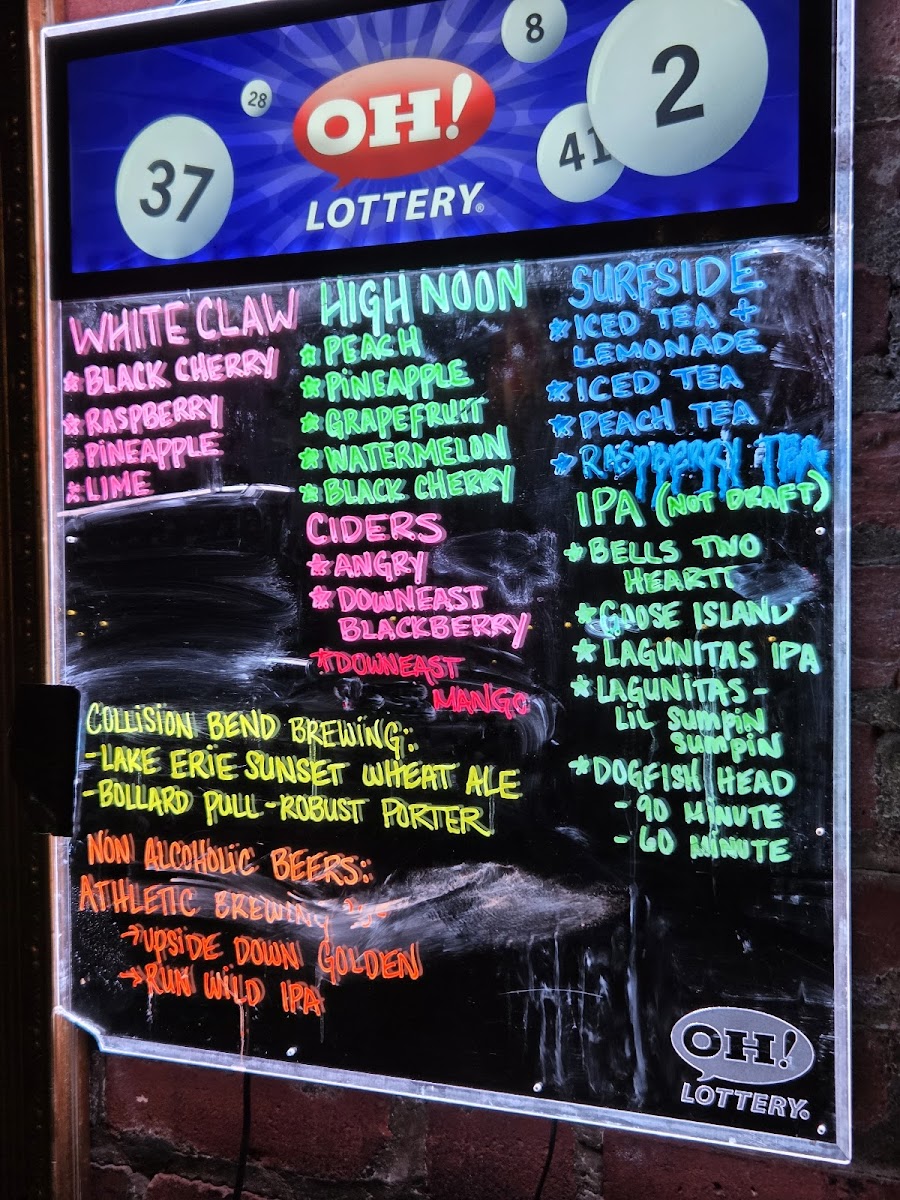 8
2
28
OH!
41
37
LOTTERY®
WHITE CLAW
* BLACK CHERRY
* RASPBERRY
* PINEAPPLE
* LIME
HIGH NOON
* PEACH
* PINEAPPLE
* GRAPEFRUIT
* WATERMELON
* BLACK CHERRY
CIDERS
* ANGRY
* DOWNEAST
BLACKBERRY
* DOWNEAST
MANGO
SURFSIDE
* ICED TEA +
LEMONADE
* ICED TEA
* PEACH TEA
* RASPBERRY TEA
IPA (NOT DRAFT)
* BELLS TWO
HEART
* GOOSE ISLAND
* LAGUNITAS IPA
* LAGUNITAS -
LIL SUMPIN
SUMPIN
* DOGFISH HEAD
- 90 MINUTE
- 60 MINUTE
COLLISION BEND BREWING:
- LAKE ERIE SUNSET WHEAT ALE
- BOLLARD PULL - ROBUST PORTER
NON ALCOHOLIC BEERS:
ATHLETIC BREWING
→ UPSIDE DOWN GOLDEN
→ RUN WILD IPA
OH!
LOTTERY®